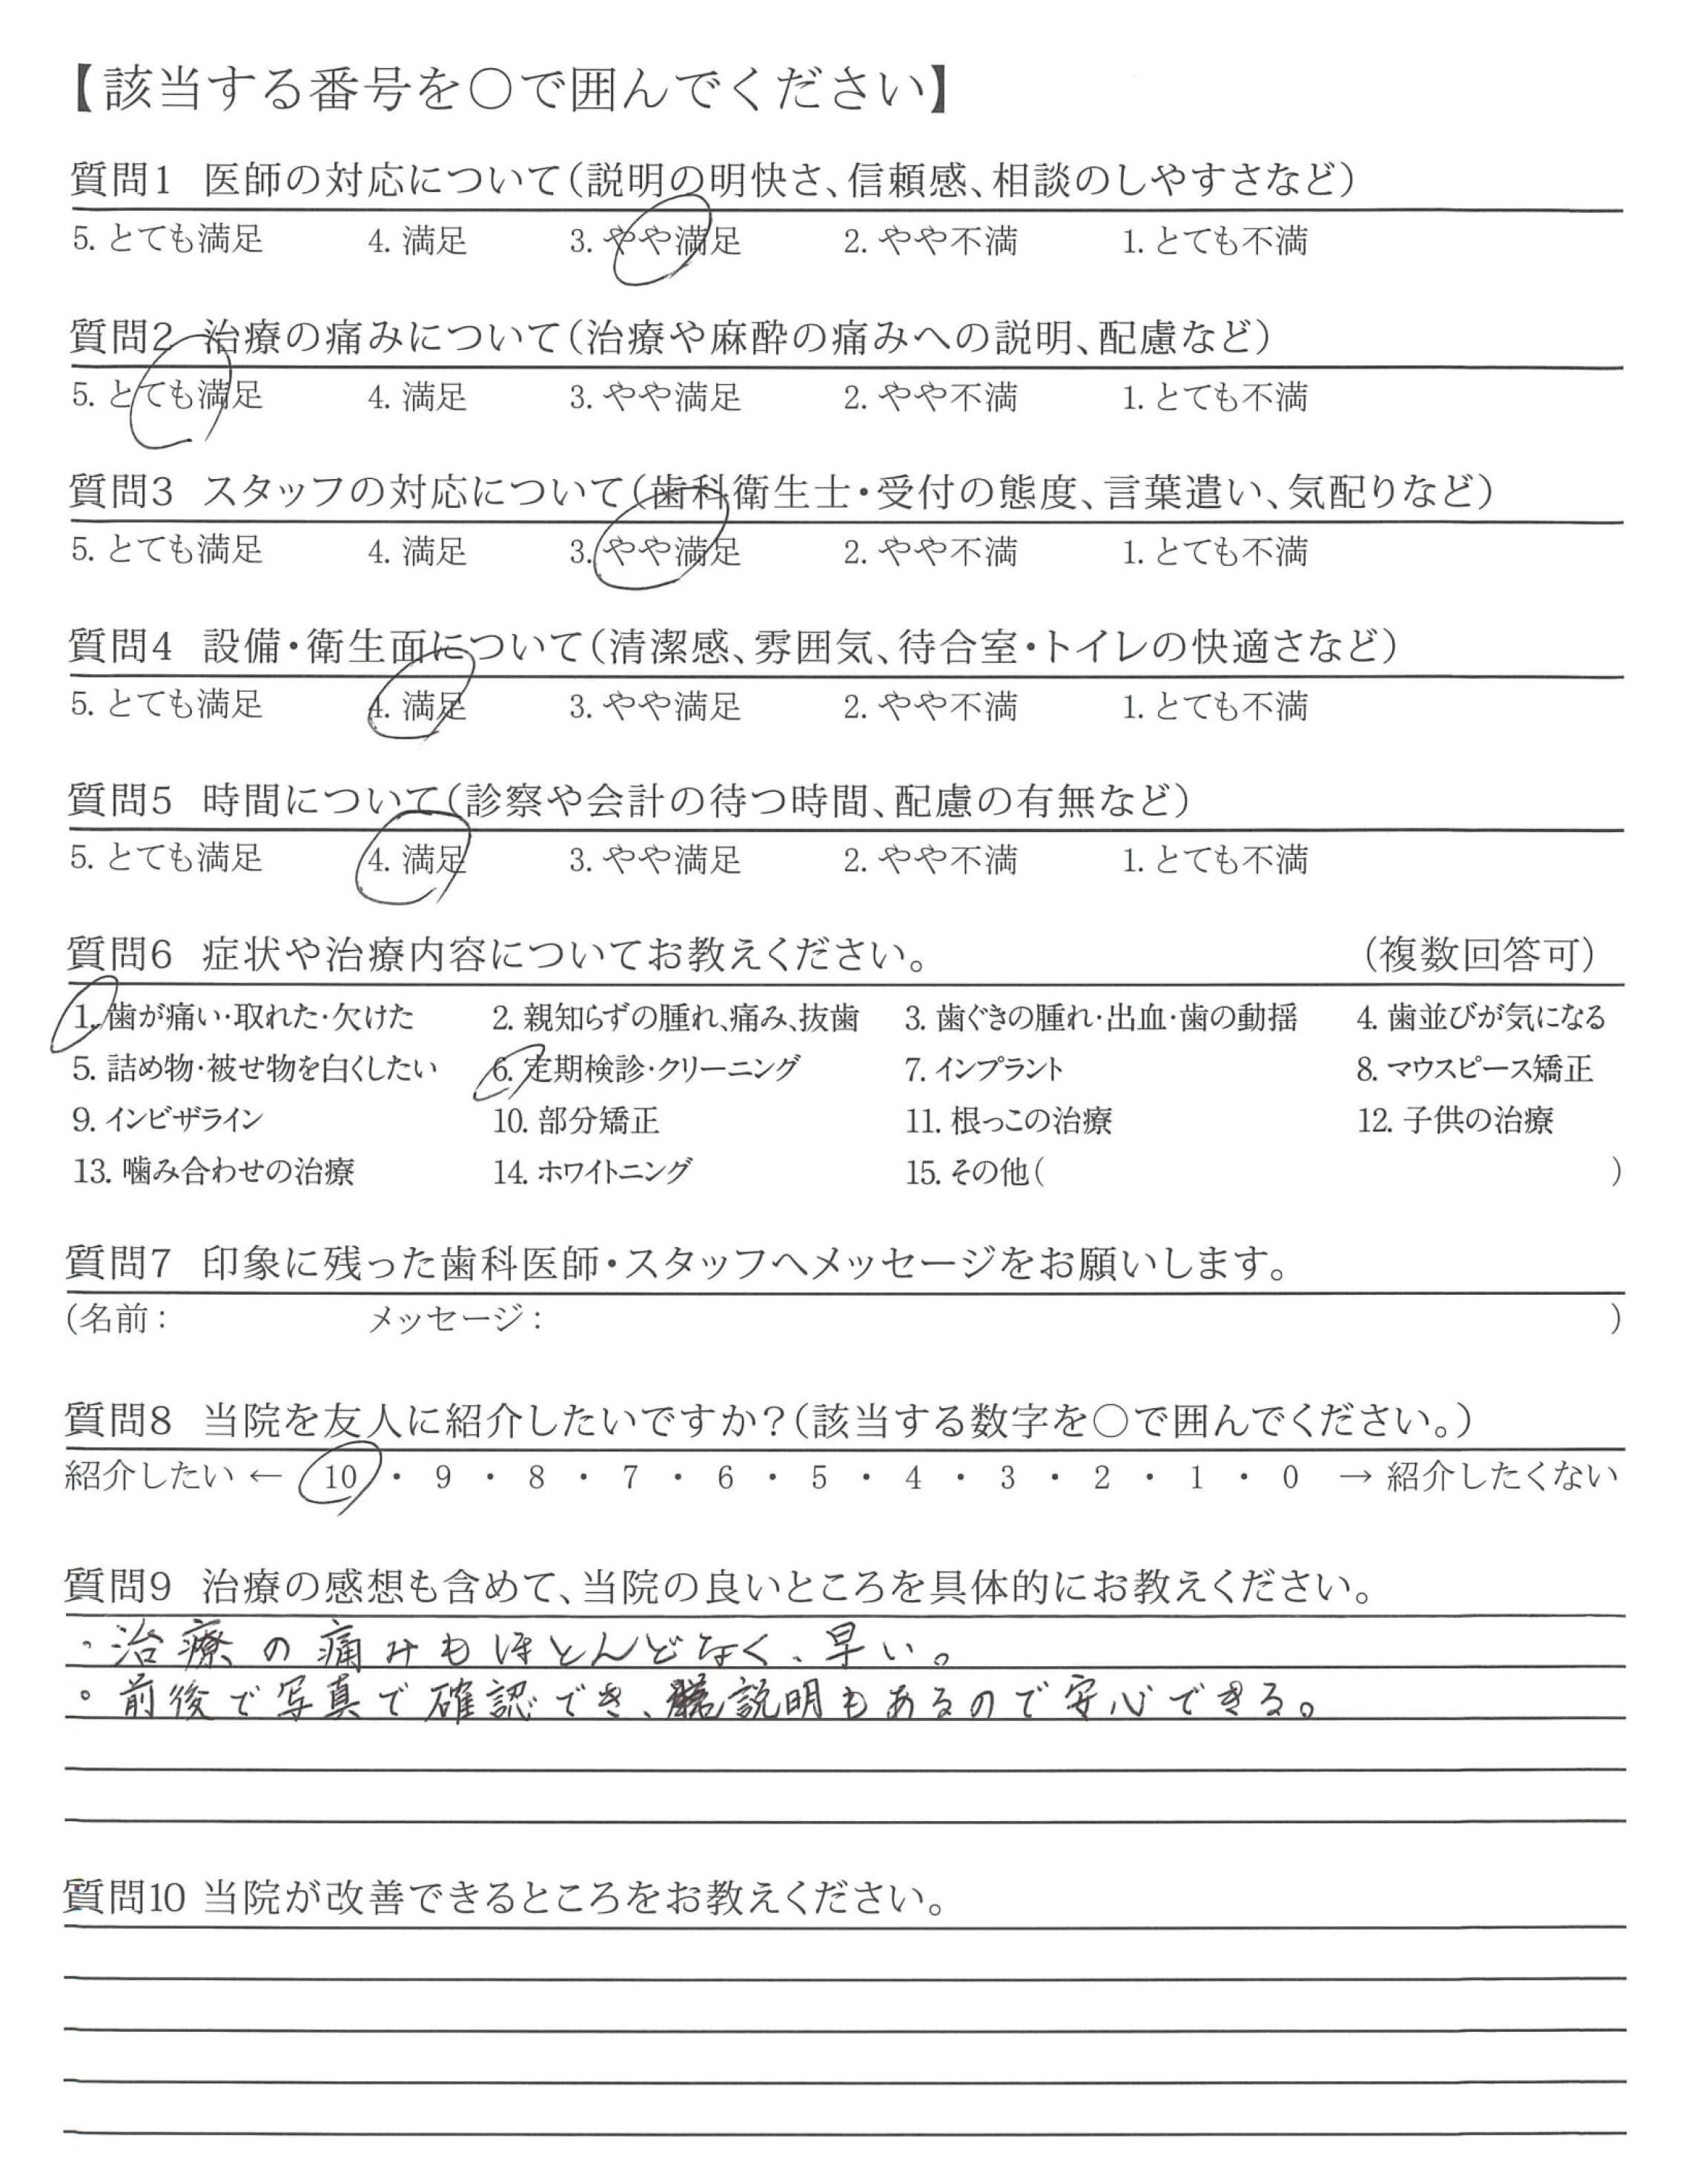 【該当する番号を〇で囲んでください】
質問1 医師の対応について(説明の明快さ、信頼感、相談のしやすさなど)
5. とても満足 4. 満足 3. やや満足 2. やや不満 1. とても不満
質問2 治療の痛みについて(治療や麻酔の痛みへの説明、配慮など)
5. とても満足 4. 満足 3. やや満足 2. やや不満 1. とても不満
質問3 スタッフの対応について(歯科衛生士・受付の態度、言葉遣い、気配りなど)
5. とても満足 4. 満足 3. やや満足 2. やや不満 1. とても不満
質問4 設備・衛生面について(清潔感、雰囲気、待合室・トイレの快適さなど)
5. とても満足 4. 満足 3. やや満足 2. やや不満 1. とても不満
質問5 時間について(診察や会計の待つ時間、配慮の有無など)
5. とても満足 4. 満足 3. やや満足 2. やや不満 1. とても不満
質問6 症状や治療内容についてお教えください。 (複数回答可)
1. 歯が痛い・取れた・欠けた 2. 親知らずの腫れ、痛み、抜歯 3. 歯ぐきの腫れ・出血・歯の動揺 4. 歯並びが気になる
5. 詰め物・被せ物を白くしたい 6. 定期検診・クリーニング 7. インプラント 8. マウスピース矯正
9. インビザライン 10. 部分矯正 11. 根っこの治療 12. 子供の治療
13. 噛み合わせの治療 14. ホワイトニング 15. その他( )
質問7 印象に残った歯科医師・スタッフへメッセージをお願いします。
(名前: メッセージ: )
質問8 当院を友人に紹介したいですか?(該当する数字を〇で囲んでください。)
紹介したい ← 10 ・ 9 ・ 8 ・ 7 ・ 6 ・ 5 ・ 4 ・ 3 ・ 2 ・ 1 ・ 0 → 紹介したくない
質問9 治療の感想も含めて、当院の良いところを具体的にお教えください。
・治療の痛みもほとんどなく、早い。
・前後で写真で確認でき、説明もあるので安心できる。
質問10 当院が改善できるところをお教えください。